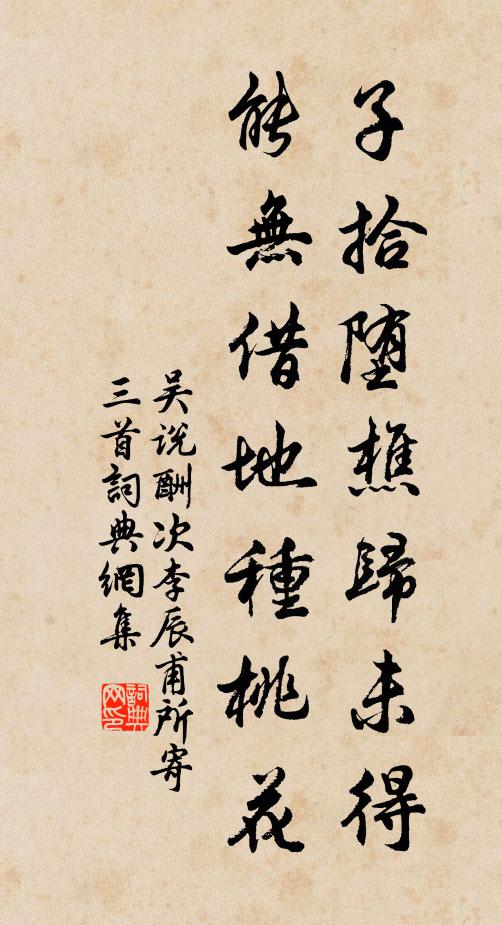 子拾堕樵歸未得
能無借地種桃花
吴说酬次李辰甫所寄
三首詞典網集
詞典网印